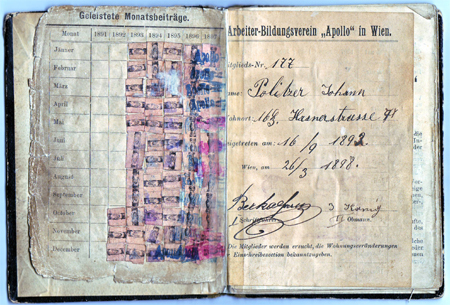 Geleistete Monatsbeiträge.
Monat 1891 1892 1893 1894 1895 1896 1897
Jänner
Februar
März
April
Mai
Juni
Juli
August
September
October
November
December
Arbeiter-Bildungsverein „Apollo“ in Wien.
Mitglieds-Nr. 177
Name: Politzer Johann
Wohnort: 16
eingetreten am: 16/9 1892
Wien, am 26/3 1898.
Schriftführer Obmann.
Die Mitglieder werden ersucht, die Wohnungsveränderungen
bekanntzugeben.